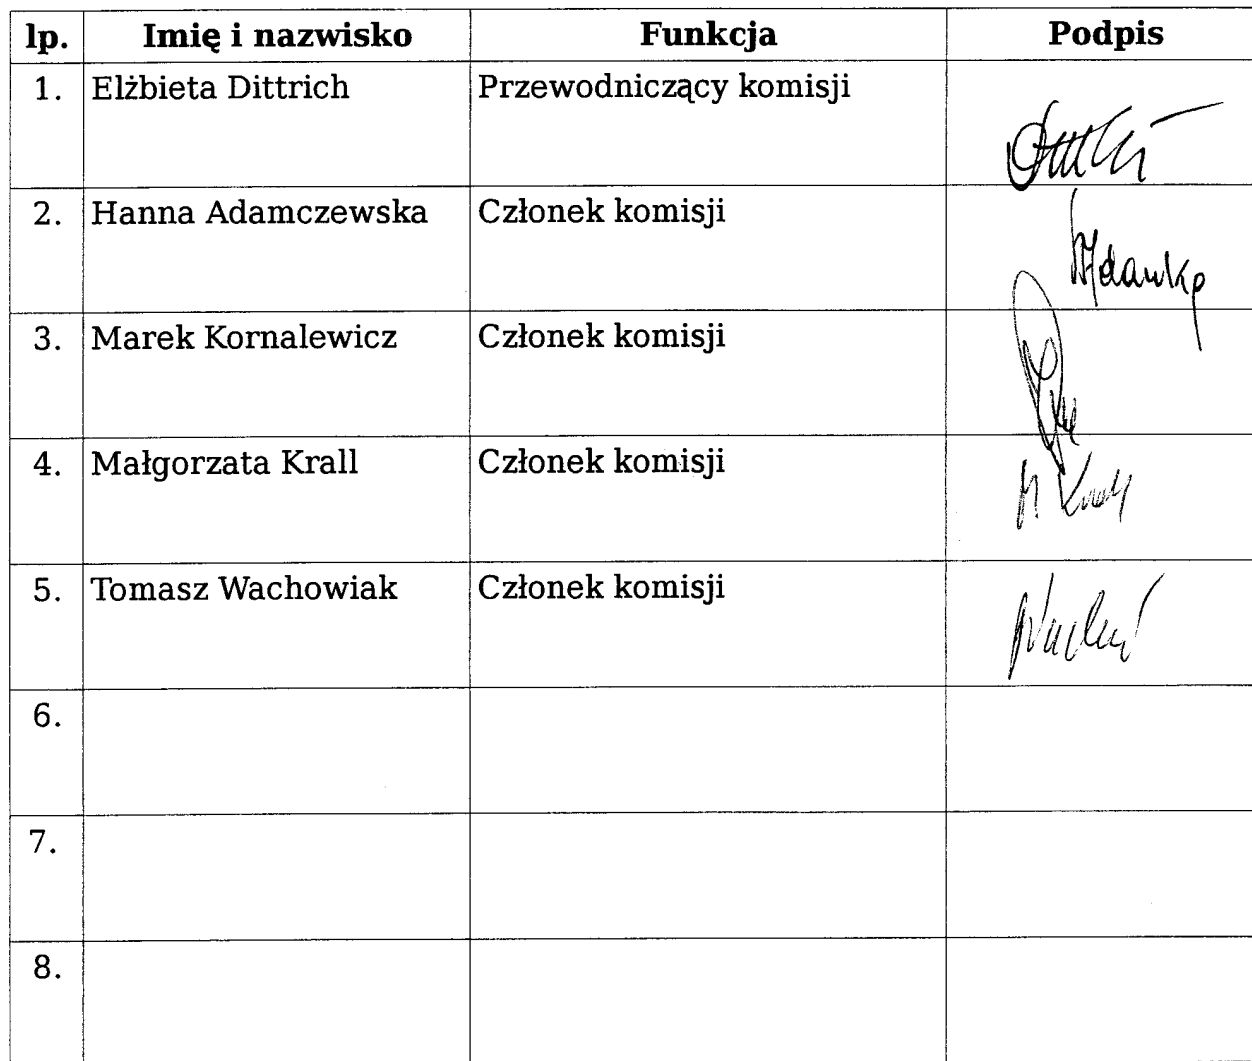 lp. Imię i nazwisko Funkcja Podpis
1. Elżbieta Dittrich Przewodniczący komisji
2. Hanna Adamczewska Członek komisji
3. Marek Kornalewicz Członek komisji
4. Małgorzata Krall Członek komisji
M Krall
5. Tomasz Wachowiak Członek komisji
6.
7.
8.